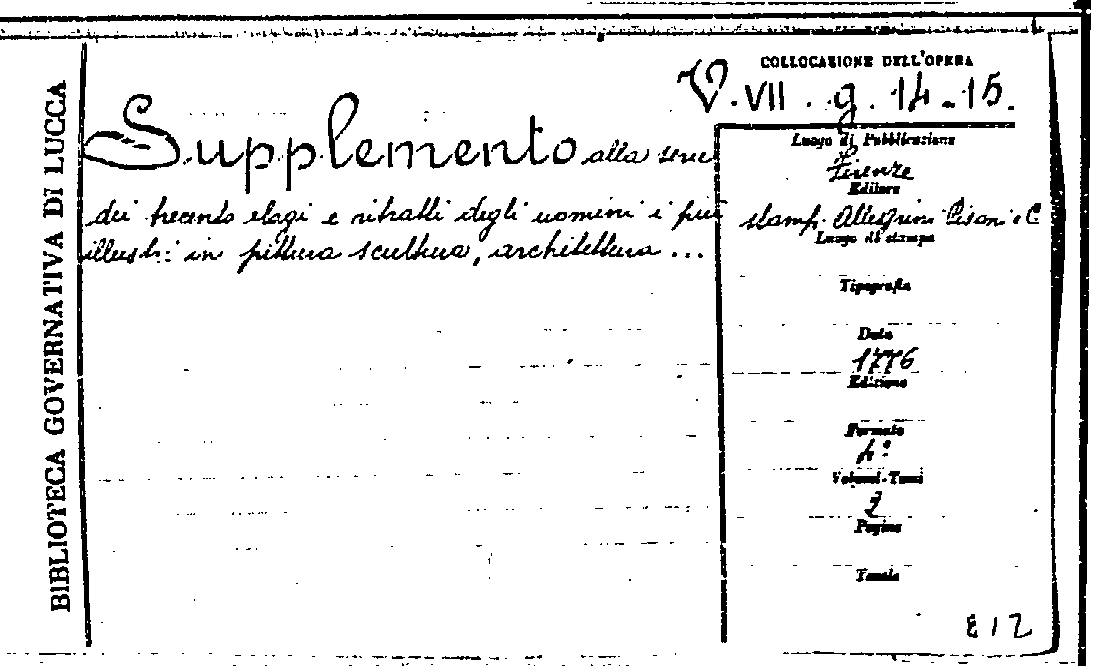 BIBLIOTECA GOVERNATIVA DI LUCCA
COLLOCAZIONE DELL'OPERA
V. VII. g. 14-15.
Supplemento alla serie
dei trecento elogi e ritratti degli uomini i più
illustri in pittura scultura, architettura ...
Luogo di Pubblicazione
Firenze
Editore
stamp. Allegrini Pisoni e C
Luogo di stampa
Tipografia
Data
1776
Edizione
Formato
4°
Volumi-Tomi
2
Pagine
Tavole
E12